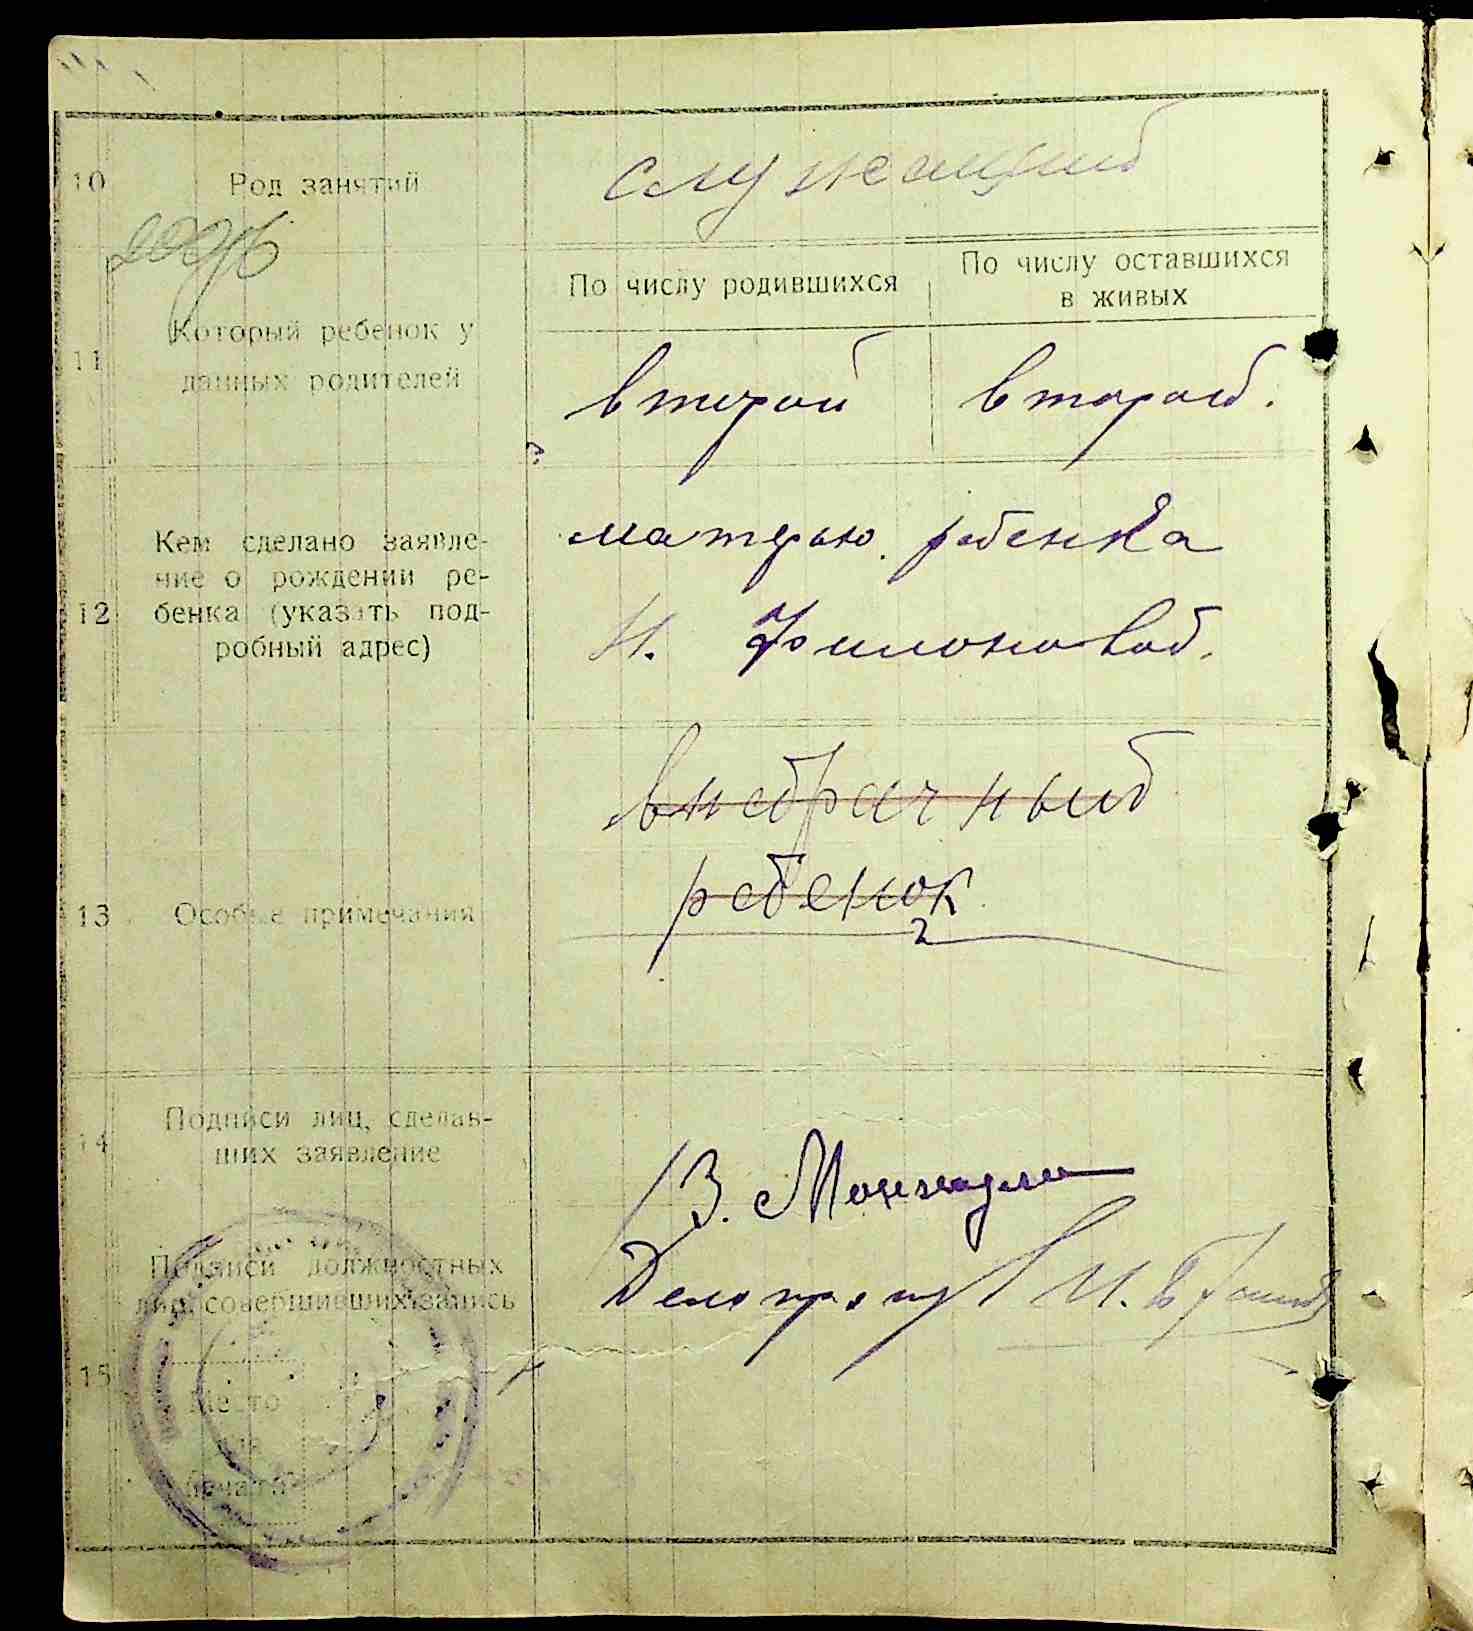 10 Род занятий служащий
По числу родившихся
По числу оставшихся
в живых
11 Который ребенок у
данных родителей
второй второй.
12 Кем сделано заявле-
ние о рождении ре-
бенка (указать под-
робный адрес)
матерью ребенка
Н. Филоновой.
13 Особые примечания
внебрачный
ребенок
14 Подписи лиц, сделав-
ших заявление
З.
15 Подписи должностных
лиц, совершивших запись
Делопр.
Место
для
печати